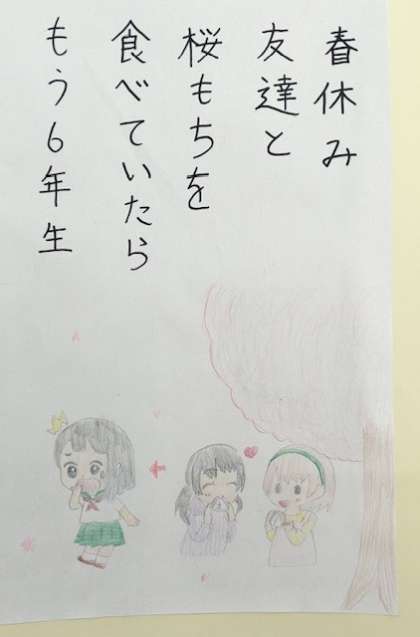 春休み
友達と
桜もちを
食べていたら
もう6年生